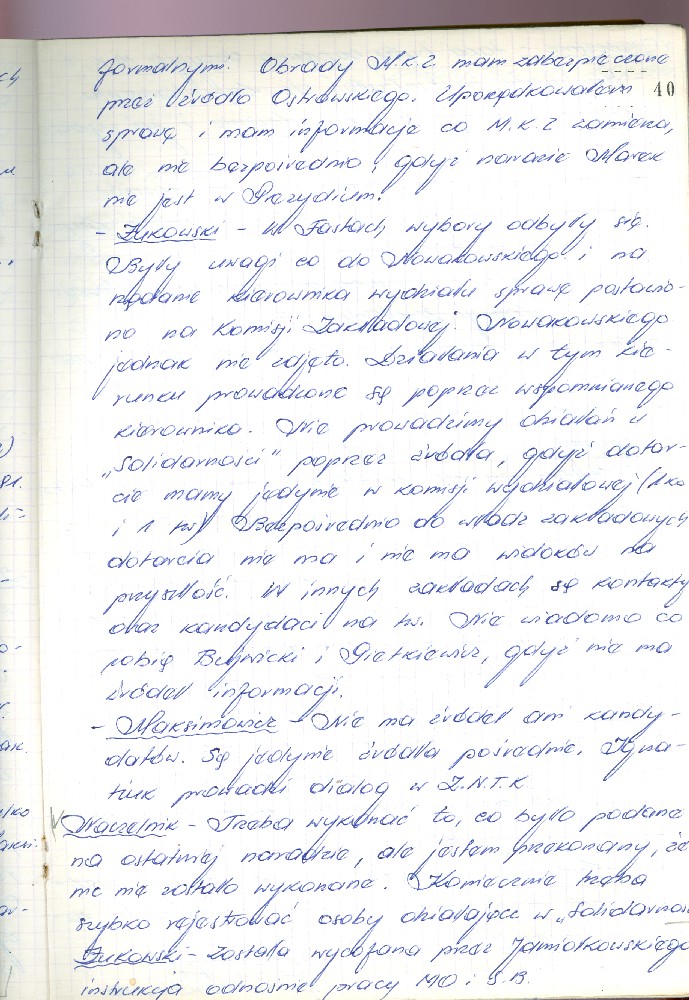 formalnymi. Obrady M.K.Z mam zabezpieczone
przez źródło Ostrowskiego. Uporządkowałem 40
sprawę i mam informacje co M.K.Z zamierza,
ale nie bezpośrednio, gdyż narazie Marek
nie jest w Prezydium.
- Żukowski - W Fastach wybory odbyły się.
Były uwagi co do Nowakowskiego i na
żądanie kierownika wydziału sprawę postawio-
no na Komisji Zakładowej. Nowakowskiego
jednak nie zdjęto. Działania w tym kie-
runku prowadzone są poprzez wspomnianego
kierownika. Nie prowadzimy działań w
„Solidarności" poprzez źródła, gdyż dotar-
cie mamy jedynie w komisji wydziałowej (1 ko
i 1 tw). Bezpośrednio do władz zakładowych
dotarcia nie ma i nie ma widoków na
przyszłość. W innych zakładach są kontakty
oraz kandydaci na tw. Nie wiadomo co
robią Bujwicki i Pietkiewicz, gdyż nie ma
źródeł informacji.
- Maksimowicz - Nie ma źródeł ani kandy-
datów. Są jedynie źródła pośrednie. Igna-
tiuk prowadzi dialog w Z.N.T.K.
Naczelnik - Trzeba wykonać to, co było podane
na ostatniej naradzie, ale jestem przekonany, że
nic nie zostało wykonane. Koniecznie trzeba
szybko rejestrować osoby działające w „Solidarnoś
Żukowski - została wycofana przez Jamiołkowskiego
instrukcja odnośnie pracy MO i S.B.